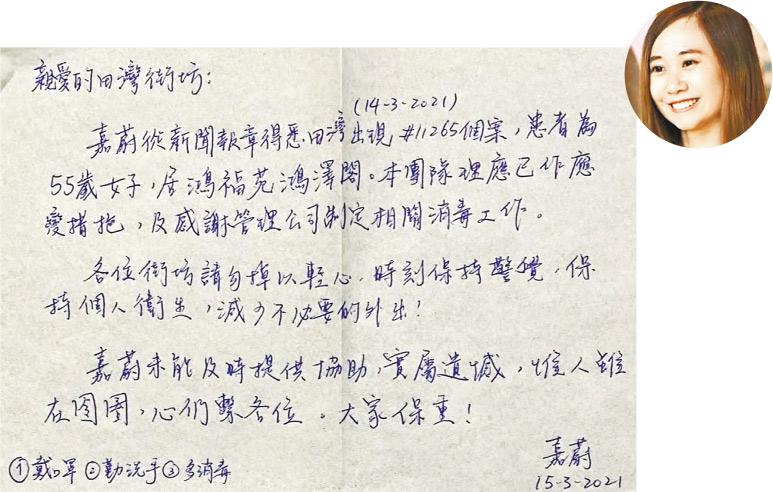 親愛的田灣街坊:
(14-3-2021)
嘉蔚從新聞報章得悉田灣出現 #11265個案，患者為
55歲女子，居鴻福苑鴻澤閣。本團隊理應已作應
變措施，及感謝管理公司制定相關消毒工作。
各位街坊請勿掉以輕心，時刻保持警覺，保
持個人衛生，減少不必要的外出！
嘉蔚未能及時提供協助，實屬遺憾，惟人雖
在囹圄，心仍繫各位。大家保重！
嘉蔚
①戴口罩 ②勤洗手 ③多消毒
15-3-2021